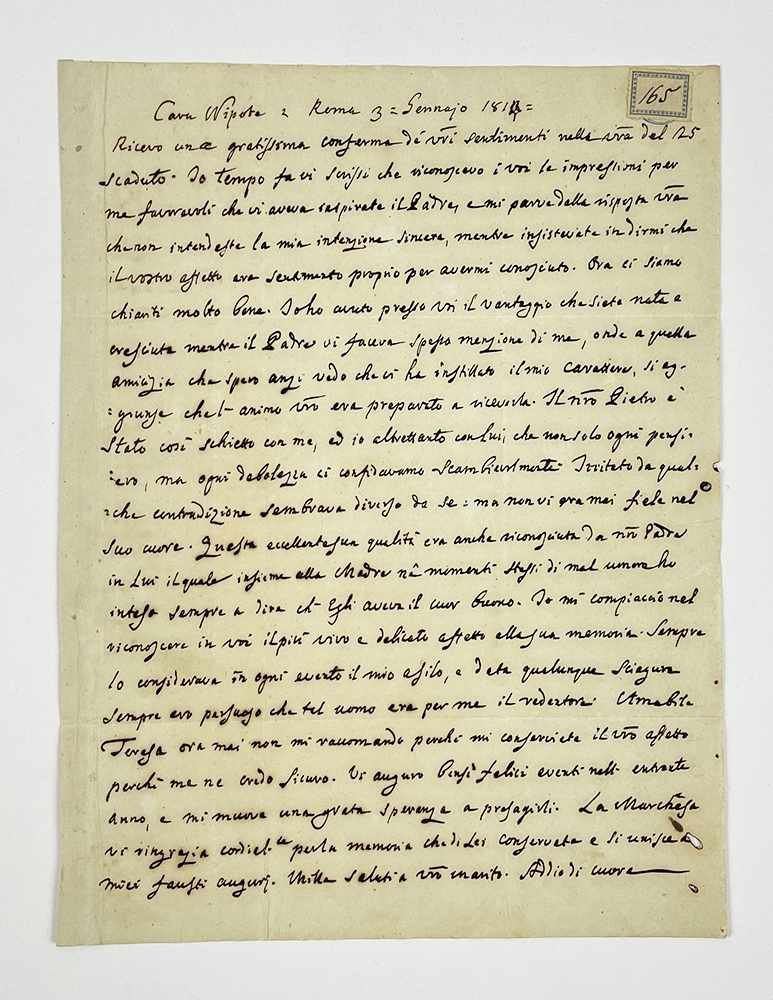 165
Cara Nipote = Roma 3 = Gennajo 181 =
Ricevo una gratissima conferma de' vri sentimenti nella vra del 25
scaduto. Io tempo fa vi scrissi che riconoscevo i voi le impressioni per
me favorevoli che vi aveva inspirate il Padre, e mi parve dalla risposta vra
che non intendeste la mia intenzione sincera, mentre insistevate in dirmi che
il vostro affetto era sentimento proprio per avermi conosciuto. Ora ci siamo
chiariti molto bene. Io ho avuto presso voi il vantaggio che siete nata e
cresciuta mentre il Padre vi faceva spesso menzione di me, onde a quella
amicizia che spero anzi vedo che vi ha instillato il mio carattere, si ag-
=giunse che l'animo vro era preparato a riceverla. Il nro Pietro è
stato così schietto con me, ed io altrettanto con lui, che non solo ogni pensi-
=ero, ma ogni debolezza ci confidavamo scambievolmente. Irritato da qual-
=che contradizione sembrava diverso da se = ma non vi era mai fiele nel
suo cuore. Questa eccellentissima qualità era anche riconosciuta da nro Padre
in Lui il quale insieme alla Madre nè momenti stessi di mal umore ho
inteso sempre a dire ch' Egli aveva il cuor buono. Io mi compiaccio nel
riconoscere in voi il più vivo e delicato affetto alla sua memoria. Sempre
lo considerava in ogni evento il mio asilo, e data qualunque sciagura
sempre ero persuaso che tal uomo era per me il redentore. Amabile
Teresa ora mai non mi raccomando perchè mi conserviate il vro affetto
perchè me ne credo sicuro. Vi auguro bensì felici eventi nell' entrante
anno, e mi muove una grata speranza a presagirli. La Marchesa
vi ringrazia cordial.te per la memoria che di Lei conservate e si unisce a
miei fausti augurj. Mille saluti a vro marito. Addio di cuore